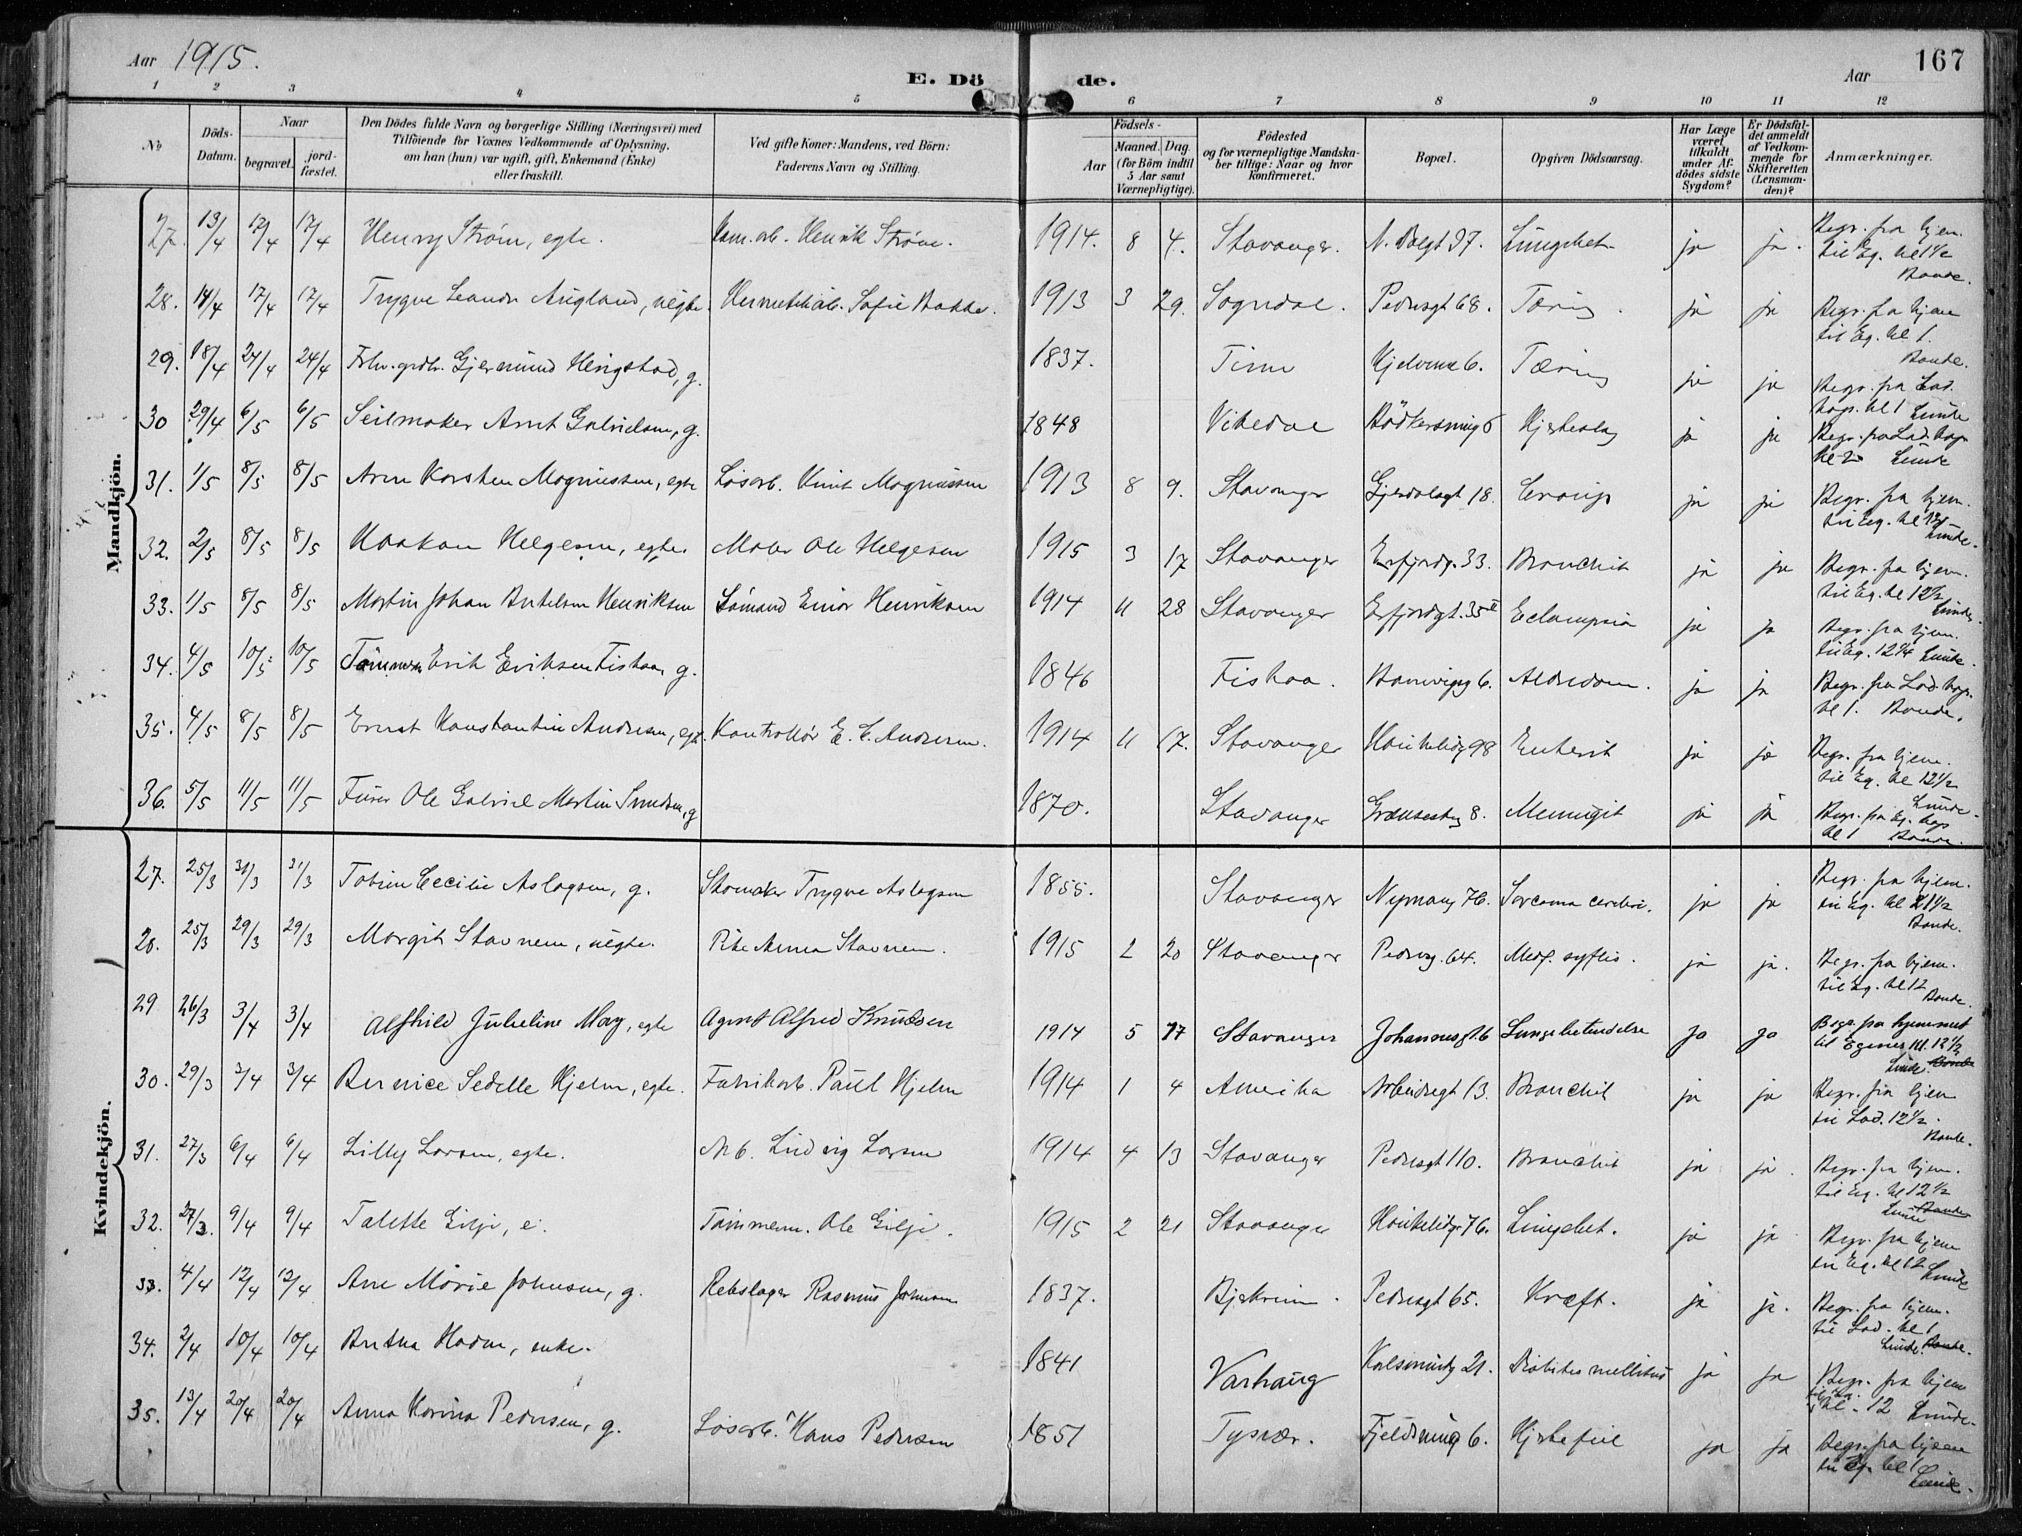 Aar 1915.
E. Dö de.
Aar
167
1 2 3 4 5 6 7 8 9 10 11 12
№
Döds-Datum.
Naar
begravet.
jord-fæstet.
Den Dödes fulde Navn og borgerlige Stilling (Næringsvei) med
Tilföiende for Voxnes Vedkommende af Oplysning,
om han (hun) var ugift, gift, Enkemand (Enke)
eller fraskilt.
Ved gifte Koner: Mandens, ved Börn:
Faderens Navn og Stilling.
Födsels-
Aar
Maaned. Dag.
(for Börn indtil
5 Aar samt
Værnepligtige).
Födested
og for værnepligtige Mandska-
ber tillige: Naar og hvor
konfirmeret.
Bopæl.
Opgiven Dödsaarsag.
Har Læge
været
tilkaldt
under Af-
dödes sidste
Sygdom?
Er Dödsfal-
det anmeldt
af Vedkom-
mende for
Skifteretten
(Lensman-
den)?
Anmærkninger.
Mandkjön.
27. 13/4 17/4 17/4 Henry Strøm, egte. Henrik Strøm. 1914. 8 4. Stavanger. Lungebet. ja ja. Begr. fra hjem. til Eg. kl 1 1/2 Bonde.
28. 14/4 17/4 17/4 Trygve Leander Augland, uegte. Sofie Bakke. 1913 3 29. Sogndal. Pedersgt 68. Tæring. ja ja Begr. fra hjem til Eg. kl 1. Bonde.
29. 18/4 24/4 24/4 Gjermund Hingstad, g. 1837. Time Hjelvene 6. Tæring ja ja Begr. fra Lad. kap. kl 1 Lunde
30 29/4 6/5 6/5 Seilmaker Arnt Gabrielsen, g. 1848 Vikedal Hjerteslag ja ja Begr. fra Lad. kap. kl 2 Lunde
31. 1/5 8/5 8/5 Arne Karsten Magnussen, egte Løsarb. Knut Magnussen 1913 8 9. Stavanger Gjesdalsgt 18. Croup ja ja Begr. fra hjem. til Eg. kl 12 Lunde.
32. 2/5 8/5 8/5 Haakon Helgesen, egte. Maler Ole Helgesen 1915 3 17 Stavanger Erfjordg. 33. Bronchit ja ja Begr. fra hjem. til Eg. kl 12 1/2 Lunde.
33. 1/5 8/5 8/5 Martin Johan Henriksen Sømand Einar Henriksen 1914 11 28 Stavanger Erfjordgt. 35 II Eclampsia ja ja Begr. fra hjem. til Eg. 12 1/4 Lunde.
34. 4/5 10/5 10/5 Tømmerm Erik Eriksen Fiskaa, g. 1846 Fiskaa. Banevigsg 6. Alderdom. ja ja Begr. fra Lad. kap. kl 1. Bonde.
35. 4/5 8/5 8/5 Ernst Konstantin Andersen, egt. Kontrollør E. C. Andersen. 1914 11 17. Stavanger Haukelidg 98 Enterit ja ja Begr. fra hjem. til Eg. kl 12 1/2 Lunde.
36. 5/5 11/5 11/5 Furer Ole Gabriel Martin, g 1870. Stavanger Grænsesteg 8. Meningit ja ja Begr. fra Eg. kap kl 1 Bonde.
Kvindekjön.
27. 25/3 31/3 31/3 Tobine Cecilie Aslagsen, g. Skomaker Trygve Aslagsen 1855. Stavanger Nymansg 76. Sarcoma cerebri. ja ja Begr. fra hjem. til Eg. kl 1 1/2 Bonde.
28. 25/3 29/3 29/3 Margit Stavnem, uegte. Pike Anna Stavnem. 1915 2 20 Stavanger Pedersg. 64. Medf. syfilis. ja ja. Begr. fra hjem. til Eg. kl 12 Bonde.
29 26/3 3/4 3/4 Alfhild Juheline May, egte Agent Alfred Knudsen 1914 5 17 Stavanger Johannesgt. 6 Lungebetendelse ja ja Begr. fra hjemmet til Eganes kl. 12 1/2 Lunde. Bonde
30. 29/3 3/4 3/4 Bernice Sedelle Hjelm, egte. Fabrikarb. Paul Hjelm 1914 1 4 Amerika Arbeidsgt 13. Bronchit ja ja Begr. fra hjem til Lad. 12 1/2. Bonde.
31. 27/3 6/4 6/4 Lilly Larsen, egte. Arb. Ludvig Larsen 1914 4 13 Stavanger Pedersgt 110. Bronchit ja ja. Begr. fra hjem. til Eg. kl 12 1/2 Lunde Bonde
32. 27/3. 9/4 9/4 Talette Gilje, e. Tømmerm. Ole Gilje. 1915 2 21 Stavanger Haukelidg 76. Lungebet. ja ja Begr. fra hjem til Eg. kl 12 Lunde
33. 4/4 12/4 12/4 Ane Marie Johnsen, g. Rebslager Rasmus Johnsen 1837. Bjekreim. Pedersgt 65. Kræft. ja ja. Begr. fra hjem. til Lad. kl 1 Lunde. Bonde.
34. 2/4 10/4 10/4 enke. 1841 Varhaug Karlsmindeg 21. Diabetes mellitus ja ja Begr. fra hjem til Eg. kl. 12 Lunde.
35. 13/4 20/4 20/4 Anna Karina Pedersen, g. Løsarb. Hans Pedersen 1851 Tysvær. Fjeldsmug 6. Hjertefeil ja ja Begr. fra hjem til Eg. kl 1 Lunde.